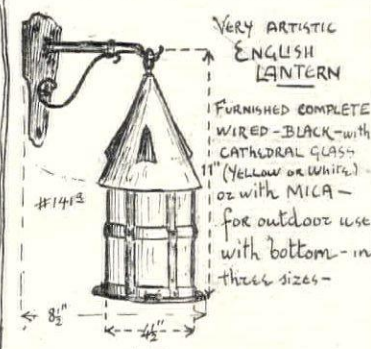 VERY ARTISTIC
ENGLISH
LANTERN
FURNISHED COMPLETE
WIRED - BLACK - with
CATHEDRAL GLASS
(YELLOW or WHITE)
or with MICA -
for outdoor use
with bottom - in
three sizes -
11"
8½"
4½"